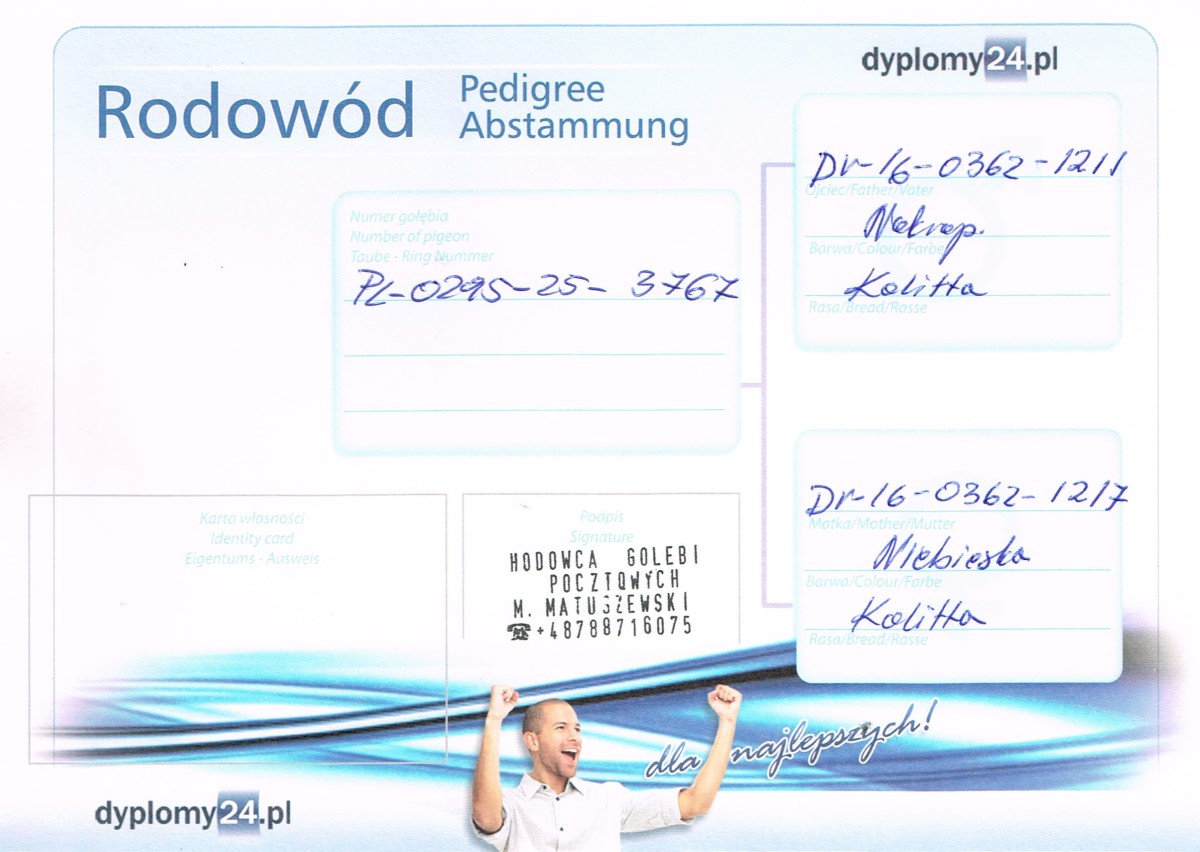 dyplomy24.pl
Rodowód
Pedigree
Abstammung
Numer gołębia
Number of pigeon
Taube - Ring Nummer
PL-0295-25-3767
DV-16-0362-1211
Ojciec/Father/Vater
Nakrap.
Barwa/Colour/Farbe
Kolitta
Rasa/Bread/Rasse
DV-16-0362-1217
Matka/Mother/Mutter
Niebieska
Barwa/Colour/Farbe
Kolitta
Rasa/Bread/Rasse
Karta własności
Identity card
Eigentums - Ausweis
Podpis
Signature
HODOWCA GOLEBI
POCZTOWYCH
M. MATUSZEWSKI
☎+48788716075
dla najlepszych!
dyplomy24.pl